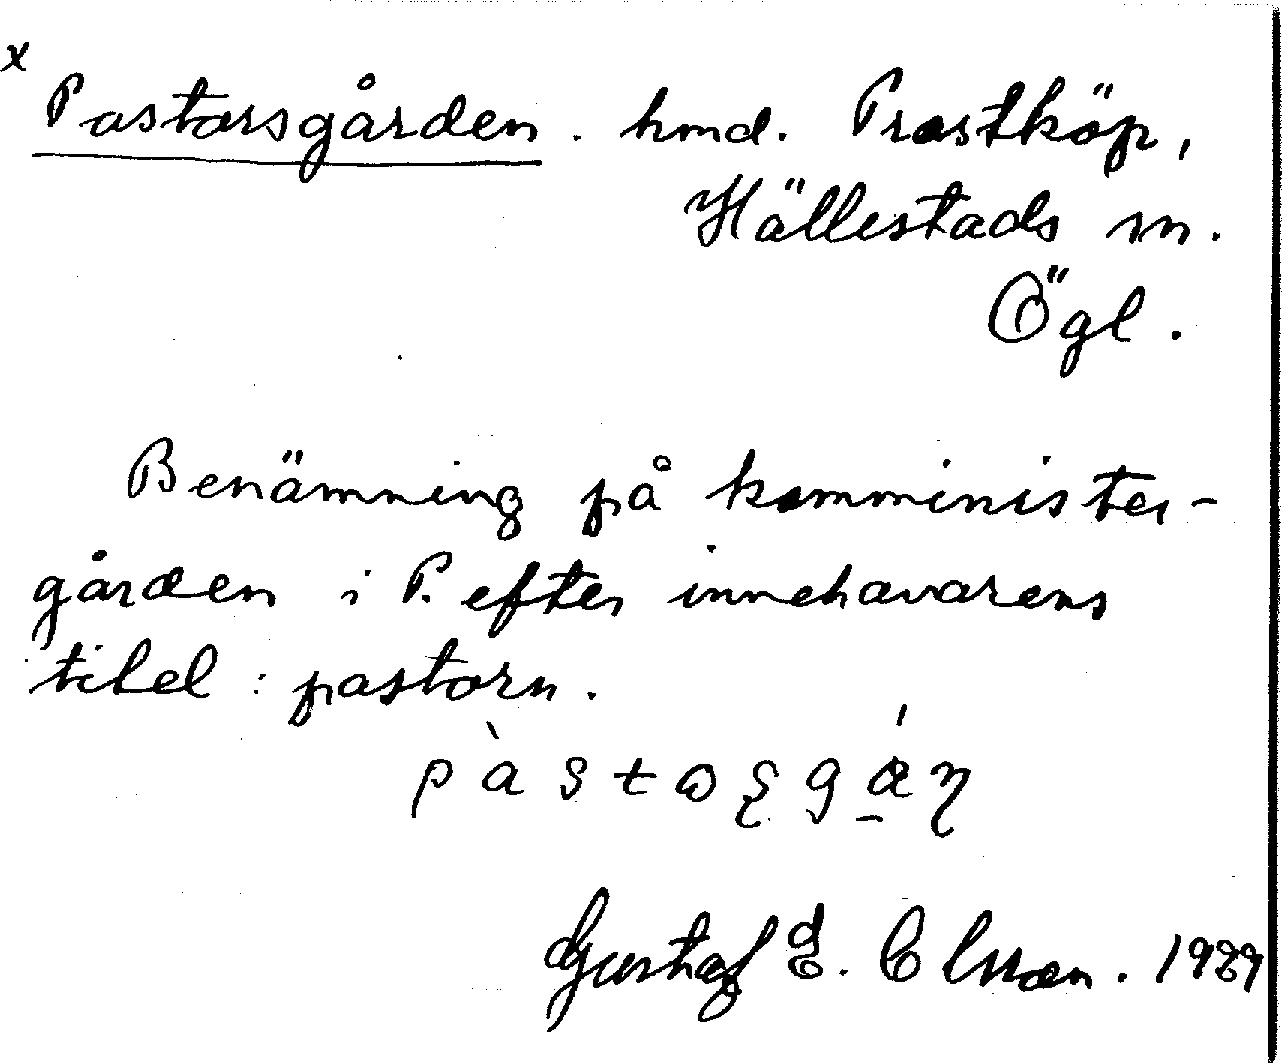 x
Pastorsgården. hmd. Prostköp,
Hällestads sn.
Ögl.
Benämning på komminister-
gården i P. efter innehavarens
titel: pastorn.
Gustaf E. Olsson. 1929